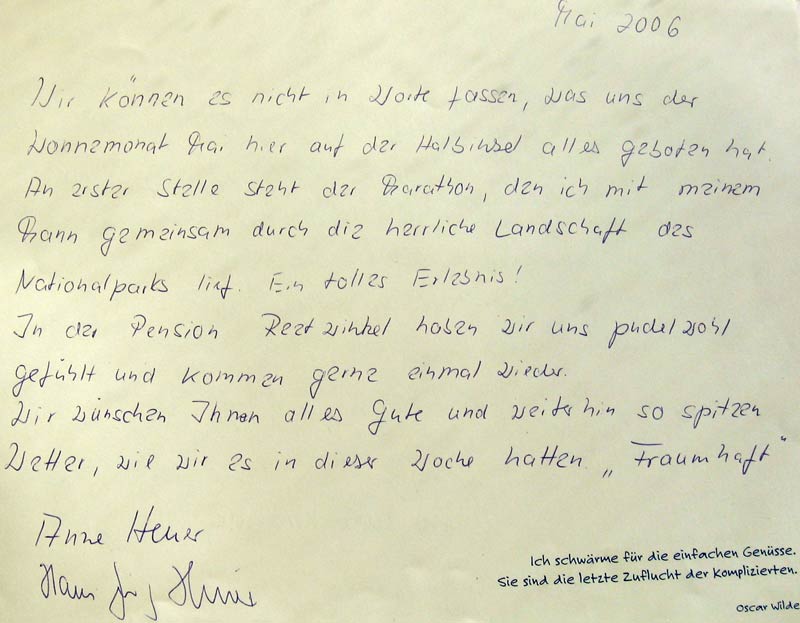 Mai 2006
Wir können es nicht in Worte fassen, was uns der
Wonnemonat Mai hier auf der Halbinsel alles geboten hat.
An erster Stelle steht der Marathon, den ich mit meinem
Mann gemeinsam durch die herrliche Landschaft des
Nationalparks lief. Ein tolles Erlebnis!
In der Pension Reetwinkel haben wir uns pudelwohl
gefühlt und kommen gerne einmal wieder.
Wir wünschen Ihnen alles Gute und weiterhin so spitzen
Wetter, wie wir es in dieser Woche hatten „Traumhaft“
Anne Heuer
Hans
Ich schwärme für die einfachen Genüsse.
Sie sind die letzte Zuflucht der Komplizierten.
Oscar Wilde